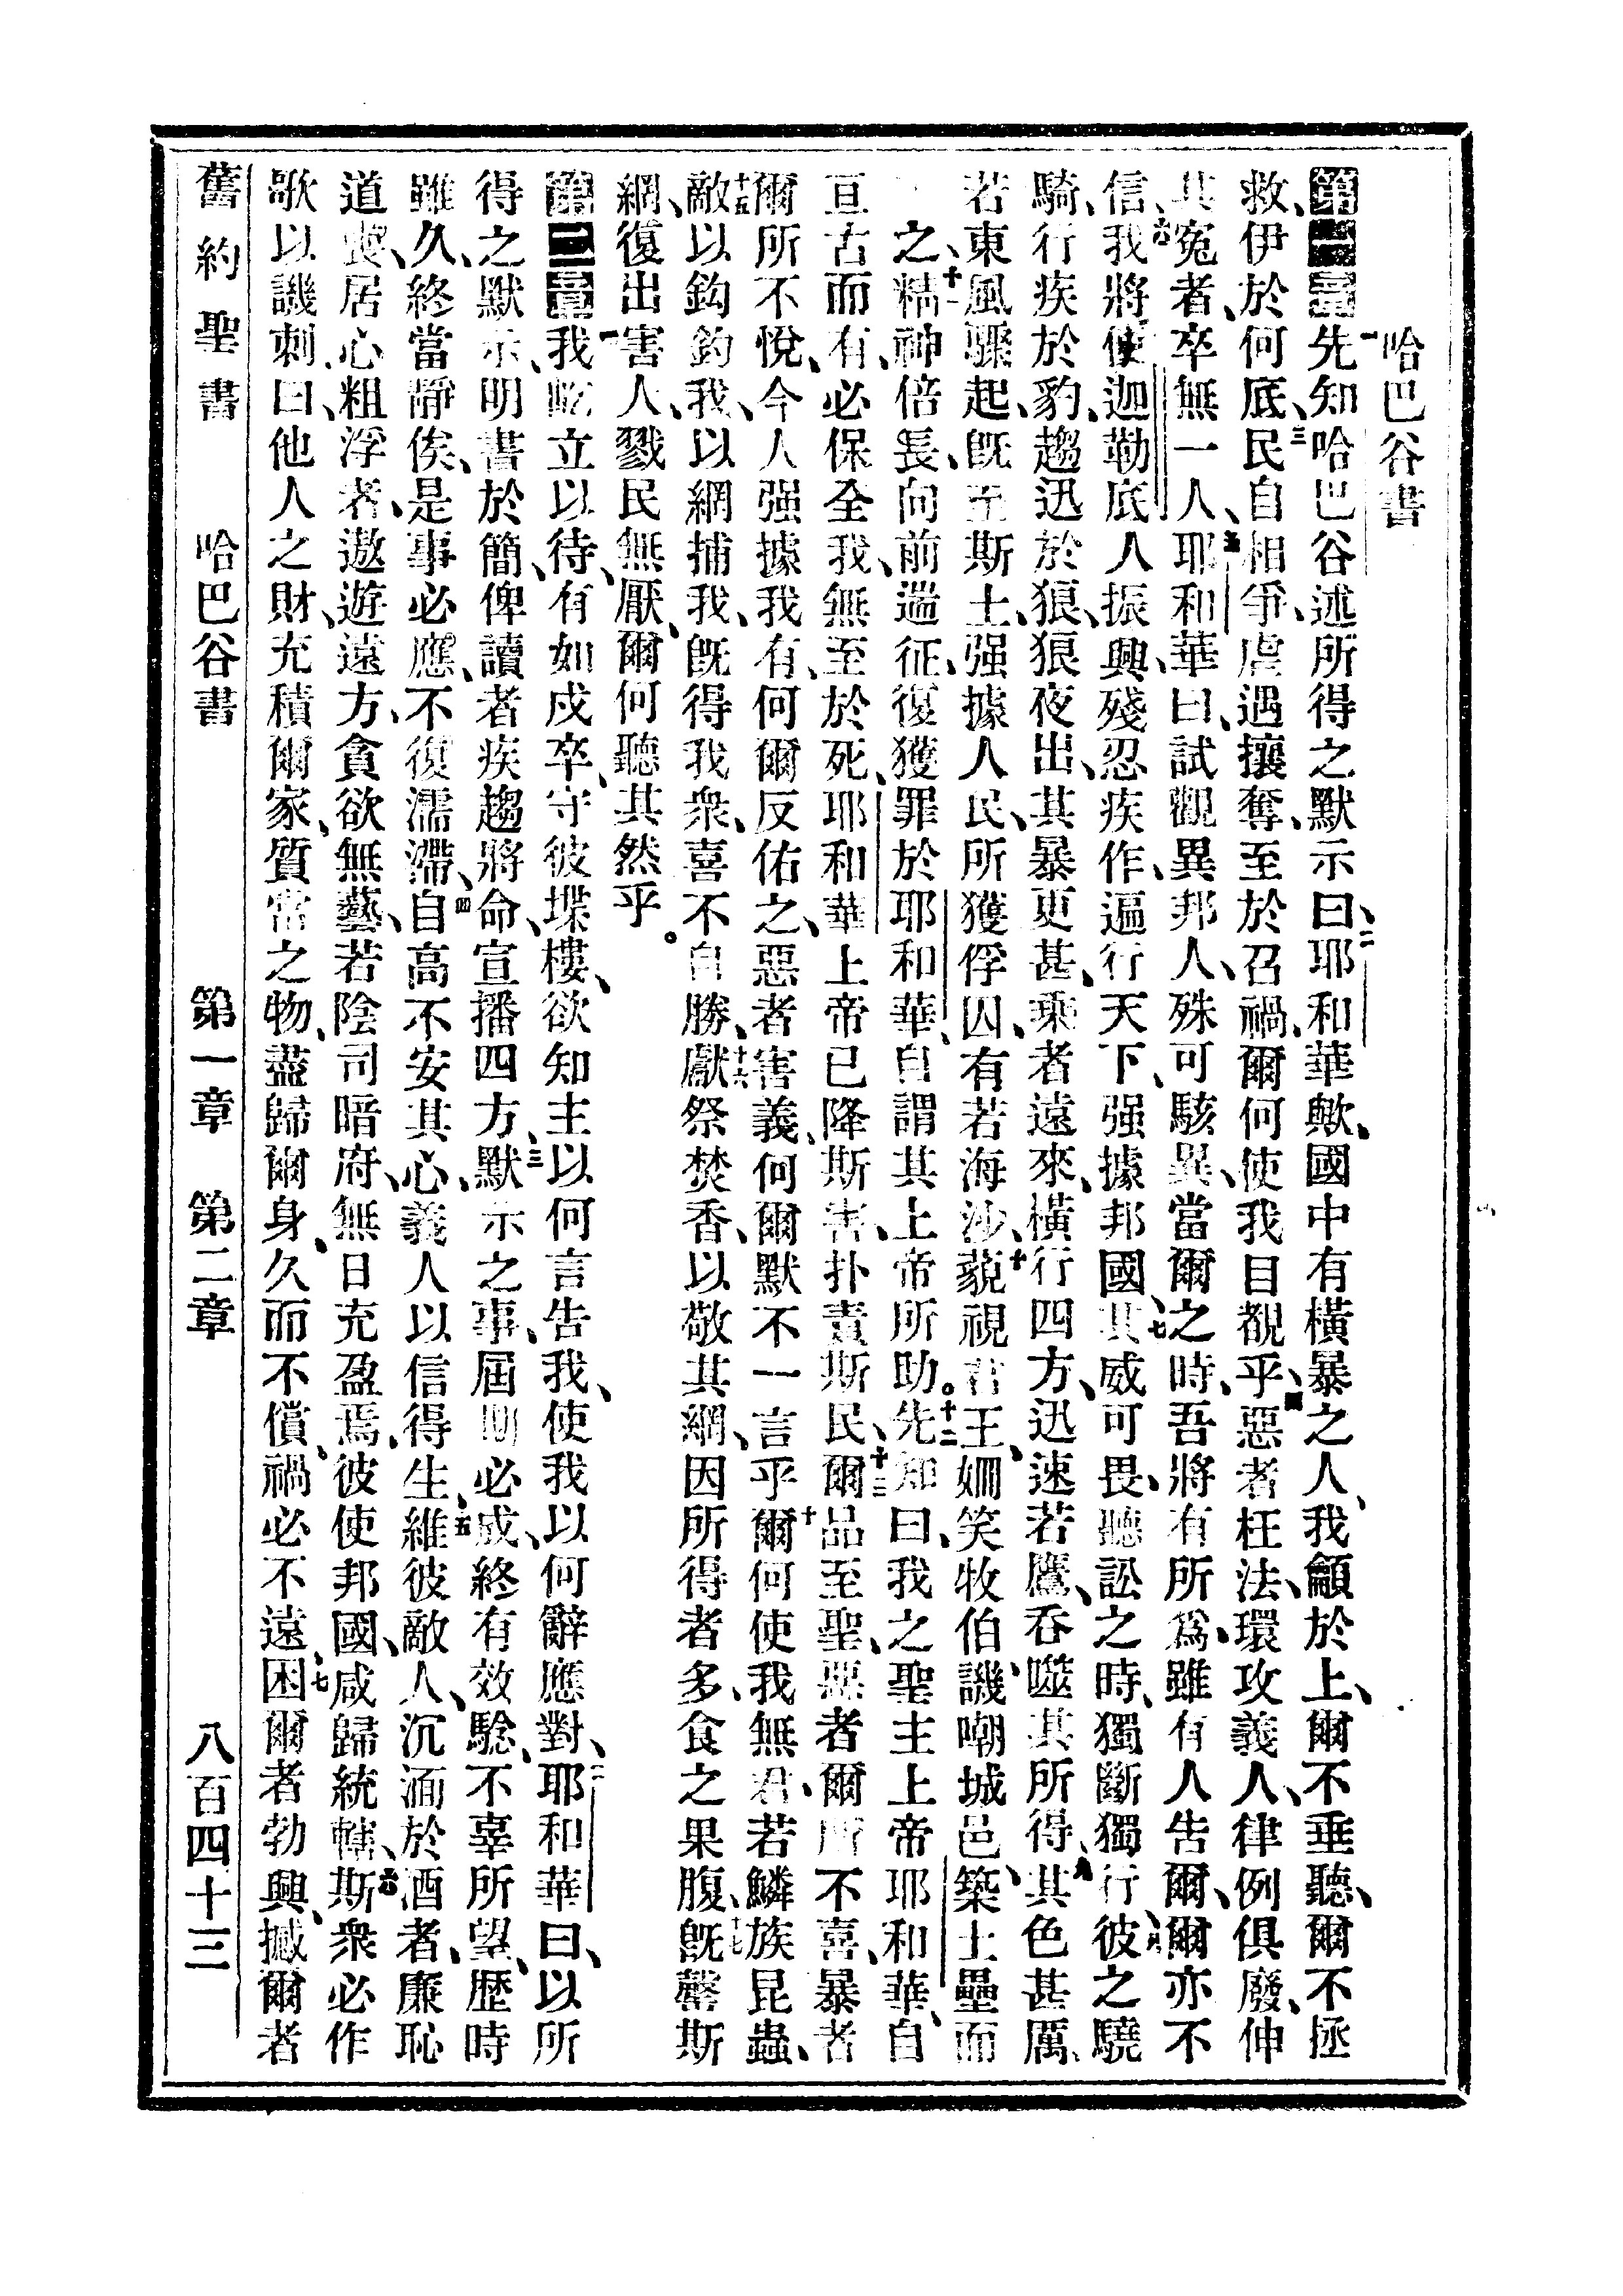 哈巴谷書
第一章一先知哈巴谷述所得之默示曰、二耶和華歟、國中有橫暴之人、我籲於上、爾不垂聽、爾不拯
救、伊於何底、三民自相爭、虐遇攘奪、至於召禍、爾何使我目覩乎、四惡者枉法、環攻義人、律例俱廢、伸
其冤者、卒無一人、五耶和華曰、試觀異邦人、殊可駭異、當爾之時、吾將有所爲、雖有人告爾、爾亦不
信、六我將使迦勒底人振興、殘忍疾作、遍行天下、强據邦國、七其威可畏、聽訟之時、獨斷獨行、八彼之驍
騎、行疾於豹、趨迅於狼、狼夜出、其暴更甚、乘者遠來、橫行四方、迅速若鷹、吞噬其所得、九其色甚厲、
若東風驟起、旣至斯土、强據人民、所獲俘囚、有若海沙、十藐視君王、姍笑牧伯、譏嘲城邑、築土壘而
之、十一精神倍長、向前遄征、復獲罪於耶和華、自謂其上帝所助。十二先知曰、我之聖主上帝耶和華、自
亘古而有、必保全我、無至於死、耶和華上帝已降斯害、扑責斯民、十三爾品至聖、惡者爾所不喜、暴者
爾所不悅、今人强據我有、何爾反佑之、惡者害義、何爾默不一言乎、十爾何使我無君、若鱗族昆蟲、
十五敵以鈎釣我、以網捕我、旣得我衆、喜不自勝、十六獻祭焚香、以敬其網、因所得者多、食之果腹、十七旣罄斯
網、復出害人、戮民無厭、爾何聽其然乎。
第二章一我屹立以待、有如戍卒、守彼堞樓、欲知主以何言告我、使我以何辭應對、二耶和華曰、以所
得之默示、明書於簡、俾讀者疾趨將命、宣播四方、三默示之事、屆期必成、終有效騐、不辜所望、歷時
雖久、終當靜俟、是事必應、不復濡滯、四自高不安其心、義人以信得生、五維彼敵人、沉湎於酒者、廉恥
道喪、居心粗浮者、遨遊遠方、貪欲無藝、若陰司暗府、無日充盈焉、彼使邦國、咸歸統轄、六斯衆必作
歌以譏刺曰、他人之財、充積爾家、質當之物、盡歸爾身、久而不償、禍必不遠、七困爾者勃興、撼爾者
舊約聖書　哈巴谷書　第一章　第二章　八百四十三